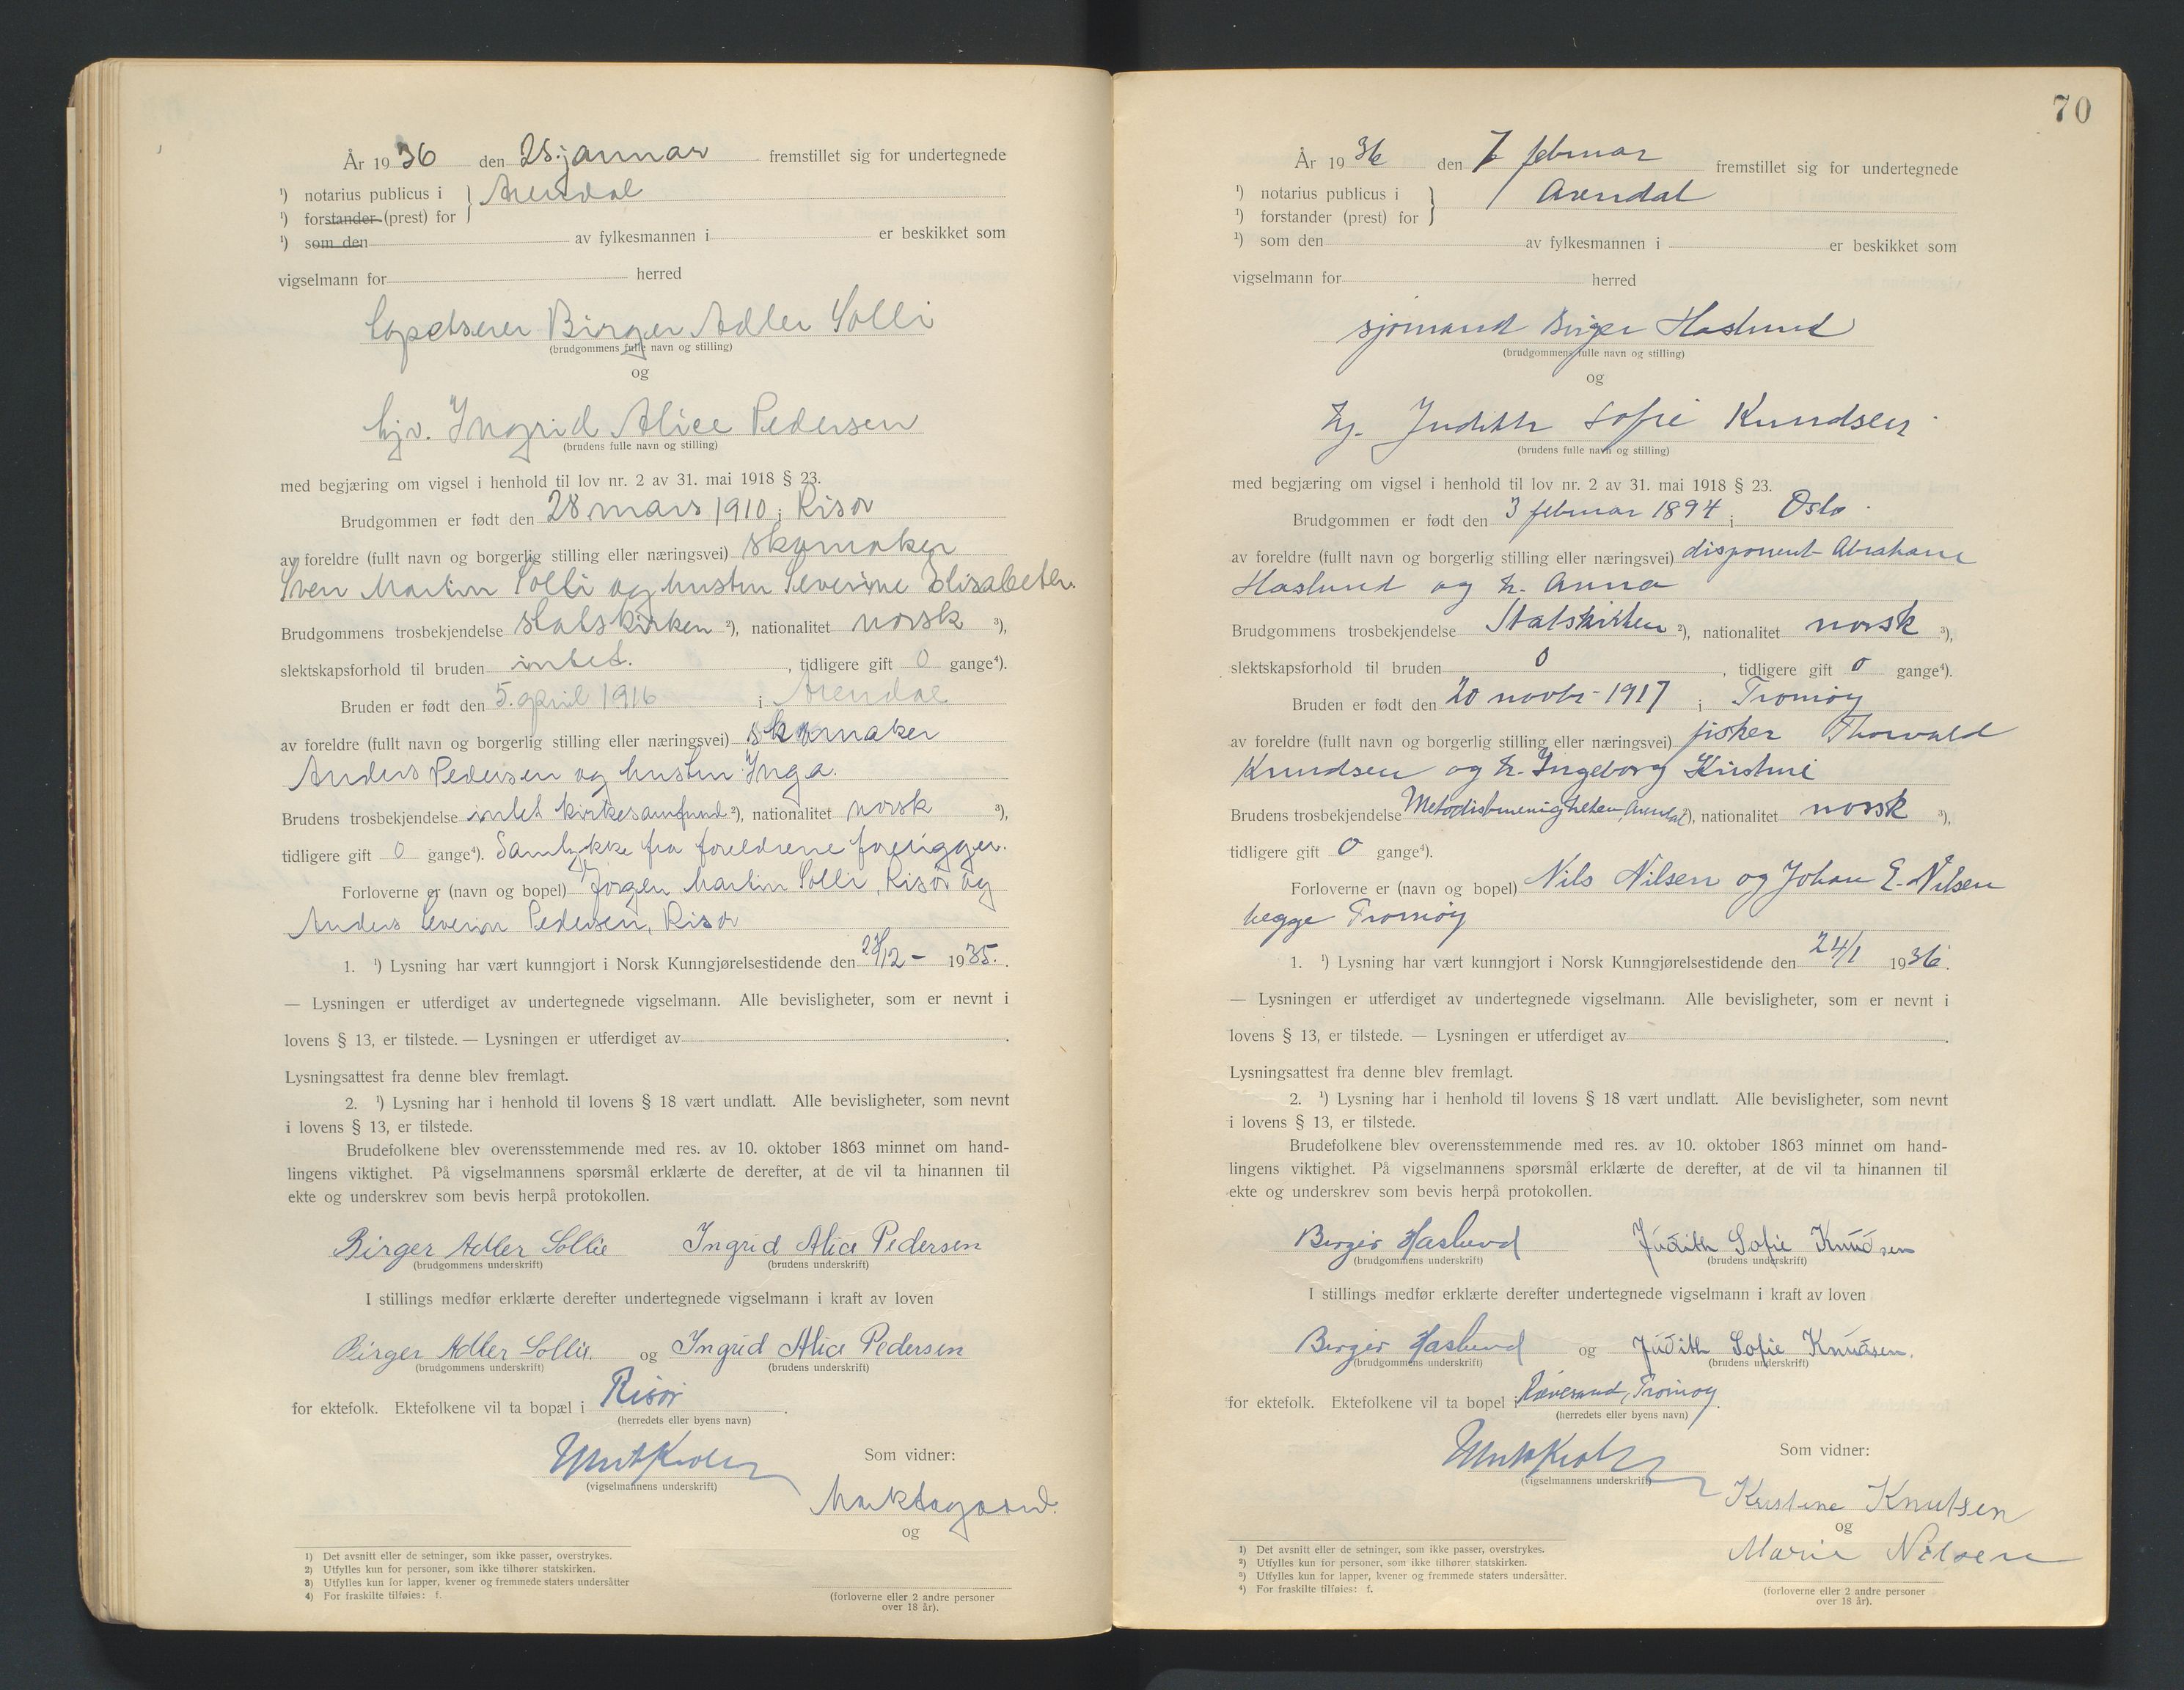 År 1936 den 25. januar fremstillet sig for undertegnede
¹) notarius publicus i } Arendal
¹) forstander (prest) for
¹) som den av fylkesmannen i er beskikket som
vigselmann for herred
Birger Adler Solli
(brudgommens fulle navn og stilling)
og
hjv. Ingrid Alice Pedersen
(brudens fulle navn og stilling)
med begjæring om vigsel i henhold til lov nr. 2 av 31. mai 1918 § 23.
Brudgommen er født den 28 mars 1910 i Risør
av foreldre (fullt navn og borgerlig stilling eller næringsvei) skomaker
Sven Martin Solli og hustru Severine Elisabeth.
Brudgommens trosbekjendelse statskirken ²), nationalitet norsk ³),
slektskapsforhold til bruden intet. , tidligere gift 0 gange⁴).
Bruden er født den 5. april 1916 i Arendal
av foreldre (fullt navn og borgerlig stilling eller næringsvei) skomaker
Anders Pedersen og hustru Inga.
Brudens trosbekjendelse intet kirkesamfund ²), nationalitet norsk ³),
tidligere gift 0 gange⁴). Samtykke fra foreldrene foreligger.
Forloverne er (navn og bopel) Jørgen Martin Solli, Risør og
Anders Severin Pedersen, Risør
1. ¹) Lysning har vært kunngjort i Norsk Kunngjørelsestidende den /12 - 1935.
— Lysningen er utferdiget av undertegnede vigselmann. Alle bevisligheter, som er nevnt i
lovens § 13, er tilstede. — Lysningen er utferdiget av
Lysningsattest fra denne blev fremlagt.
2. ¹) Lysning har i henhold til lovens § 18 vært undlatt. Alle bevisligheter, som nevnt
i lovens § 13, er tilstede.
Brudefolkene blev overensstemmende med res. av 10. oktober 1863 minnet om hand-
lingens viktighet. På vigselmannens spørsmål erklærte de derefter, at de vil ta hinannen til
ekte og underskrev som bevis herpå protokollen.
Birger Adler Sollie Ingrid Alice Pedersen
(brudgommens underskrift) (brudens underskrift)
I stillings medfør erklærte derefter undertegnede vigselmann i kraft av loven
Birger Adler Sollie. og Ingrid Alice Pedersen
(brudgommens underskrift) (brudens underskrift)
for ektefolk. Ektefolkene vil ta bopæl i Risør .
(herredets eller byens navn)
Som vidner:
(vigselmannens underskrift)
og
1) Det avsnitt eller de setninger, som ikke passer, overstrykes.
2) Utfylles kun for personer, som ikke tilhører statskirken.
3) Utfylles kun for lapper, kvener og fremmede staters undersåtter
4) For fraskilte tilføies: f.
(forloverne eller 2 andre personer
over 18 år).
70
År 1936 den 7 februar fremstillet sig for undertegnede
¹) notarius publicus i } Arendal
¹) forstander (prest) for
¹) som den av fylkesmannen i er beskikket som
vigselmann for herred
sjømand Birger Haslund
(brudgommens fulle navn og stilling)
og
hj. Judith Sofie Knudsen
(brudens fulle navn og stilling)
med begjæring om vigsel i henhold til lov nr. 2 av 31. mai 1918 § 23.
Brudgommen er født den 3 februar 1894 i Oslo
av foreldre (fullt navn og borgerlig stilling eller næringsvei) disponent Abraham
Haslund og h. Anna
Brudgommens trosbekjendelse Statskirken ²), nationalitet norsk ³),
slektskapsforhold til bruden 0 , tidligere gift 0 gange⁴).
Bruden er født den 20 novbr - 1917 i Tromøy
av foreldre (fullt navn og borgerlig stilling eller næringsvei) fisker Thorvald
Knudsen og h. Ingeborg Kristine
Brudens trosbekjendelse Metodistmenigheten, Arendal ²), nationalitet norsk ³),
tidligere gift 0 gange⁴).
Forloverne er (navn og bopel) Nils Nilsen og Johan E. Nilsen
begge Tromøy
1. ¹) Lysning har vært kunngjort i Norsk Kunngjørelsestidende den 24/1 1936.
— Lysningen er utferdiget av undertegnede vigselmann. Alle bevisligheter, som er nevnt i
lovens § 13, er tilstede. — Lysningen er utferdiget av .
Lysningsattest fra denne blev fremlagt.
2. ¹) Lysning har i henhold til lovens § 18 vært undlatt. Alle bevisligheter, som nevnt
i lovens § 13, er tilstede.
Brudefolkene blev overensstemmende med res. av 10. oktober 1863 minnet om hand-
lingens viktighet. På vigselmannens spørsmål erklærte de derefter, at de vil ta hinannen til
ekte og underskrev som bevis herpå protokollen.
Birger Haslund Judith Sofie Knudsen
(brudgommens underskrift) (brudens underskrift)
I stillings medfør erklærte derefter undertegnede vigselmann i kraft av loven
Birger Haslund og Judith Sofie Knudsen.
(brudgommens underskrift) (brudens underskrift)
for ektefolk. Ektefolkene vil ta bopel i Rævesand, Tromøy.
(herredets eller byens navn)
Som vidner:
(vigselmannens underskrift)
Kristine Knutsen
og
Marie Nilsen
1) Det avsnitt eller de setninger, som ikke passer, overstrykes.
²) Utfylles kun for personer, som ikke tilhører statskirken.
³) Utfylles kun for lapper, kvener og fremmede staters undersåtter.
⁴) For fraskilte tilføies: f.
(forloverne eller 2 andre personer
over 18 år).